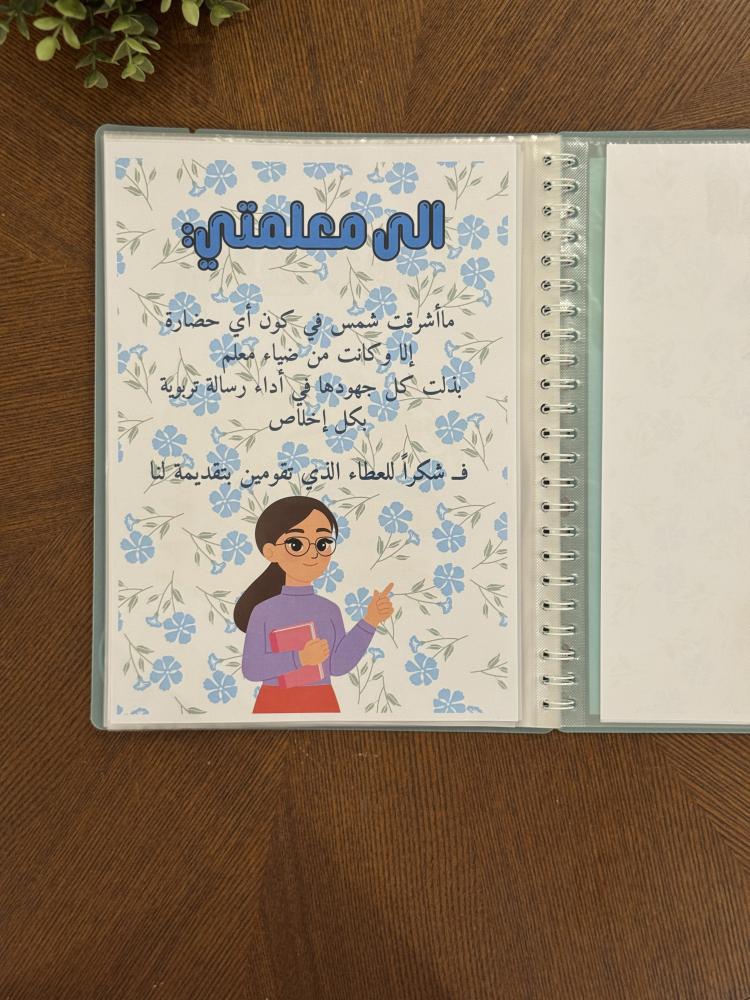 الى معلمتي:
ماأشرقت شمس في كون أي حضارة
إلا وكانت من ضياء معلم
بذلت كل جهودها في أداء رسالة تربوية
بكل إخلاص
فـ شكراً للعطاء الذي تقومين بتقديمة لنا